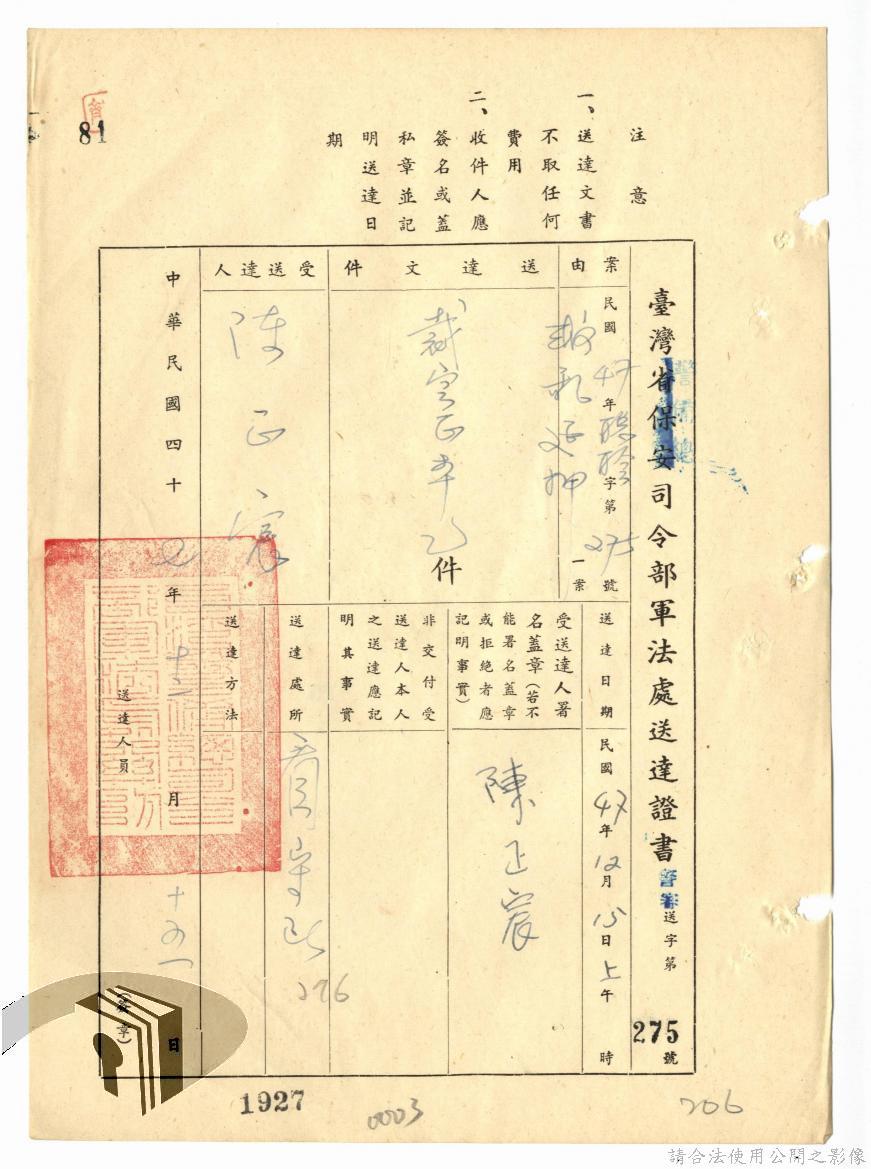 81
注意
一、送達文書
不取任何
費用
二、收件人應
簽名或蓋
私章並記
明送達日
期
臺灣省保安司令部軍法處送達證書
警備總
警審送字第275號
案由
民國47年聽字第275號
延押一案
送達文件
裁定正本乙件
受送達人
陳正宸
送達日期
民國47年12月15日上午 時
受送達人署
名蓋章(若不
能署名蓋章
或拒絕者應
記明事實)
陳正宸
非交付受
送達人本人
之送達應記
明其事實
送達處所
看守所
276
送達方法
中華民國四十七年十二月十五日
送達人員
(簽章)
1927
0003
206
請合法使用公開之影像